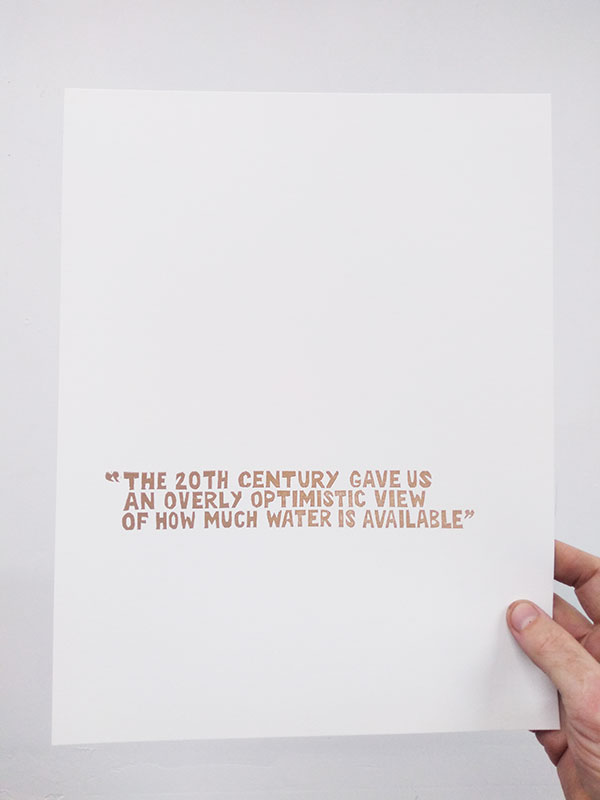 “THE 20TH CENTURY GAVE US
AN OVERLY OPTIMISTIC VIEW
OF HOW MUCH WATER IS AVAILABLE”